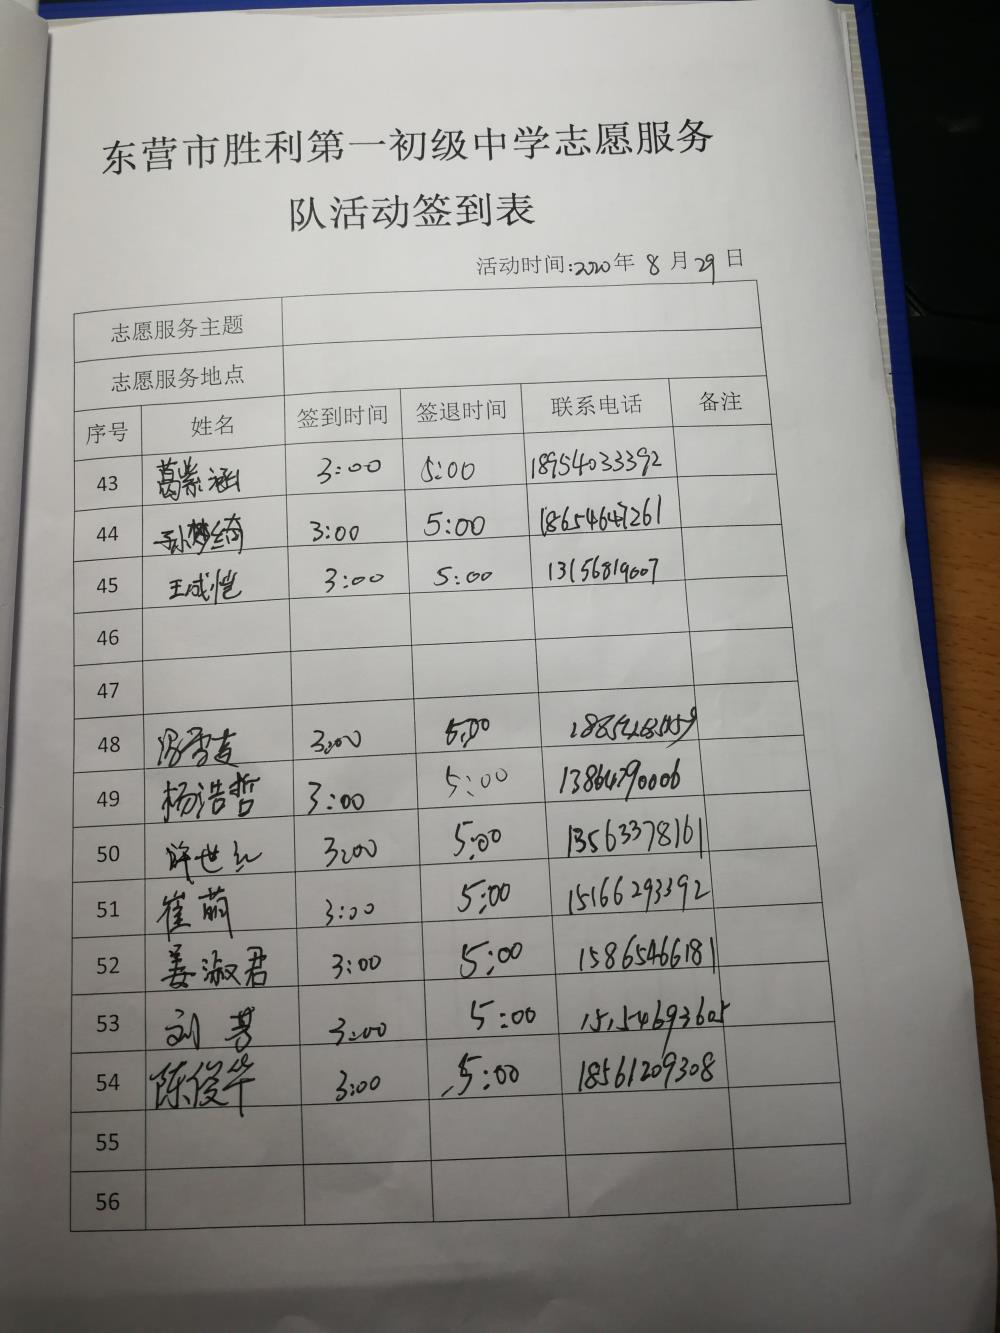 东营市胜利第一初级中学志愿服务
队活动签到表
活动时间:2020年 8月29日
志愿服务主题
志愿服务地点
序号 姓名 签到时间 签退时间 联系电话 备注
43 葛紫涵 3:00 5:00 18954033392
44 孙梦绮 3:00 5:00 18654647261
45 王成恺 3:00 5:00 13156819007
46
47
48 3:00 5:00
49 杨浩哲 3:00 5:00 13864790006
50 许世 3:00 5:00 13563378161
51 崔萌 3:00 5:00 15166293392
52 姜淑君 3:00 5:00 15865466181
53 刘 3:00 5:00 15154693605
54 陈俊华 3:00 5:00 18561209308
55
56